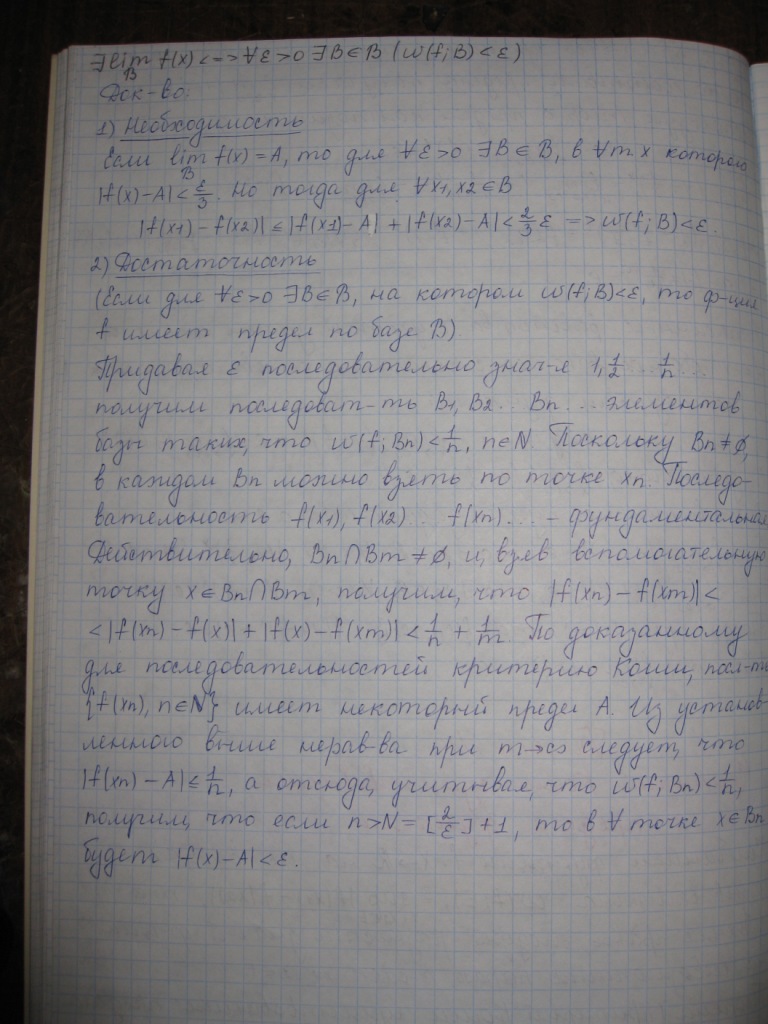 ∃ lim f(x) <=> ∀ε>0 ∃B∈B (w(f;B)<ε)
B
Док-во:
1) Необходимость
Если lim f(x) = A, то для ∀ε>0 ∃B∈B, в ∀ т. x которого
B
|f(x)-A|<ε/3. Но тогда для ∀x1,x2∈B
|f(x1)-f(x2)| ≤ |f(x1)-A| + |f(x2)-A| < 2/3 ε => w(f;B)<ε.
2) Достаточность
(Если для ∀ε>0 ∃B∈B, на котором w(f;B)<ε, то ф-ция
f имеет предел по базе B)
Придавая ε последовательно знач-я 1, 1/2 ... 1/n ...
получим последоват-ть B1, B2 .. Bn ... элементов
базы таких, что w(f;Bn)<1/n, n∈N. Поскольку Bn≠∅,
в каждом Bn можно взять по точке xn. Последо-
вательность f(x1), f(x2) .. f(xn) ... - фундаментальная
Действительно, Bn∩Bm≠∅, и, взяв вспомогательную
точку x∈Bn∩Bm, получим, что |f(xn)-f(xm)|<
<|f(xn)-f(x)|+|f(x)-f(xm)|<1/n + 1/m. По доказанному
для последовательностей критерию Коши, посл-ть
{f(xn), n∈N} имеет некоторый предел A. Из установ-
ленного выше нерав-ва при m→∞ следует, что
|f(xn)-A|≤1/n, а отсюда, учитывая, что w(f;Bn)<1/n,
получим, что если n>N=[2/ε]+1, то в ∀ точке x∈Bn
будет |f(x)-A|<ε.